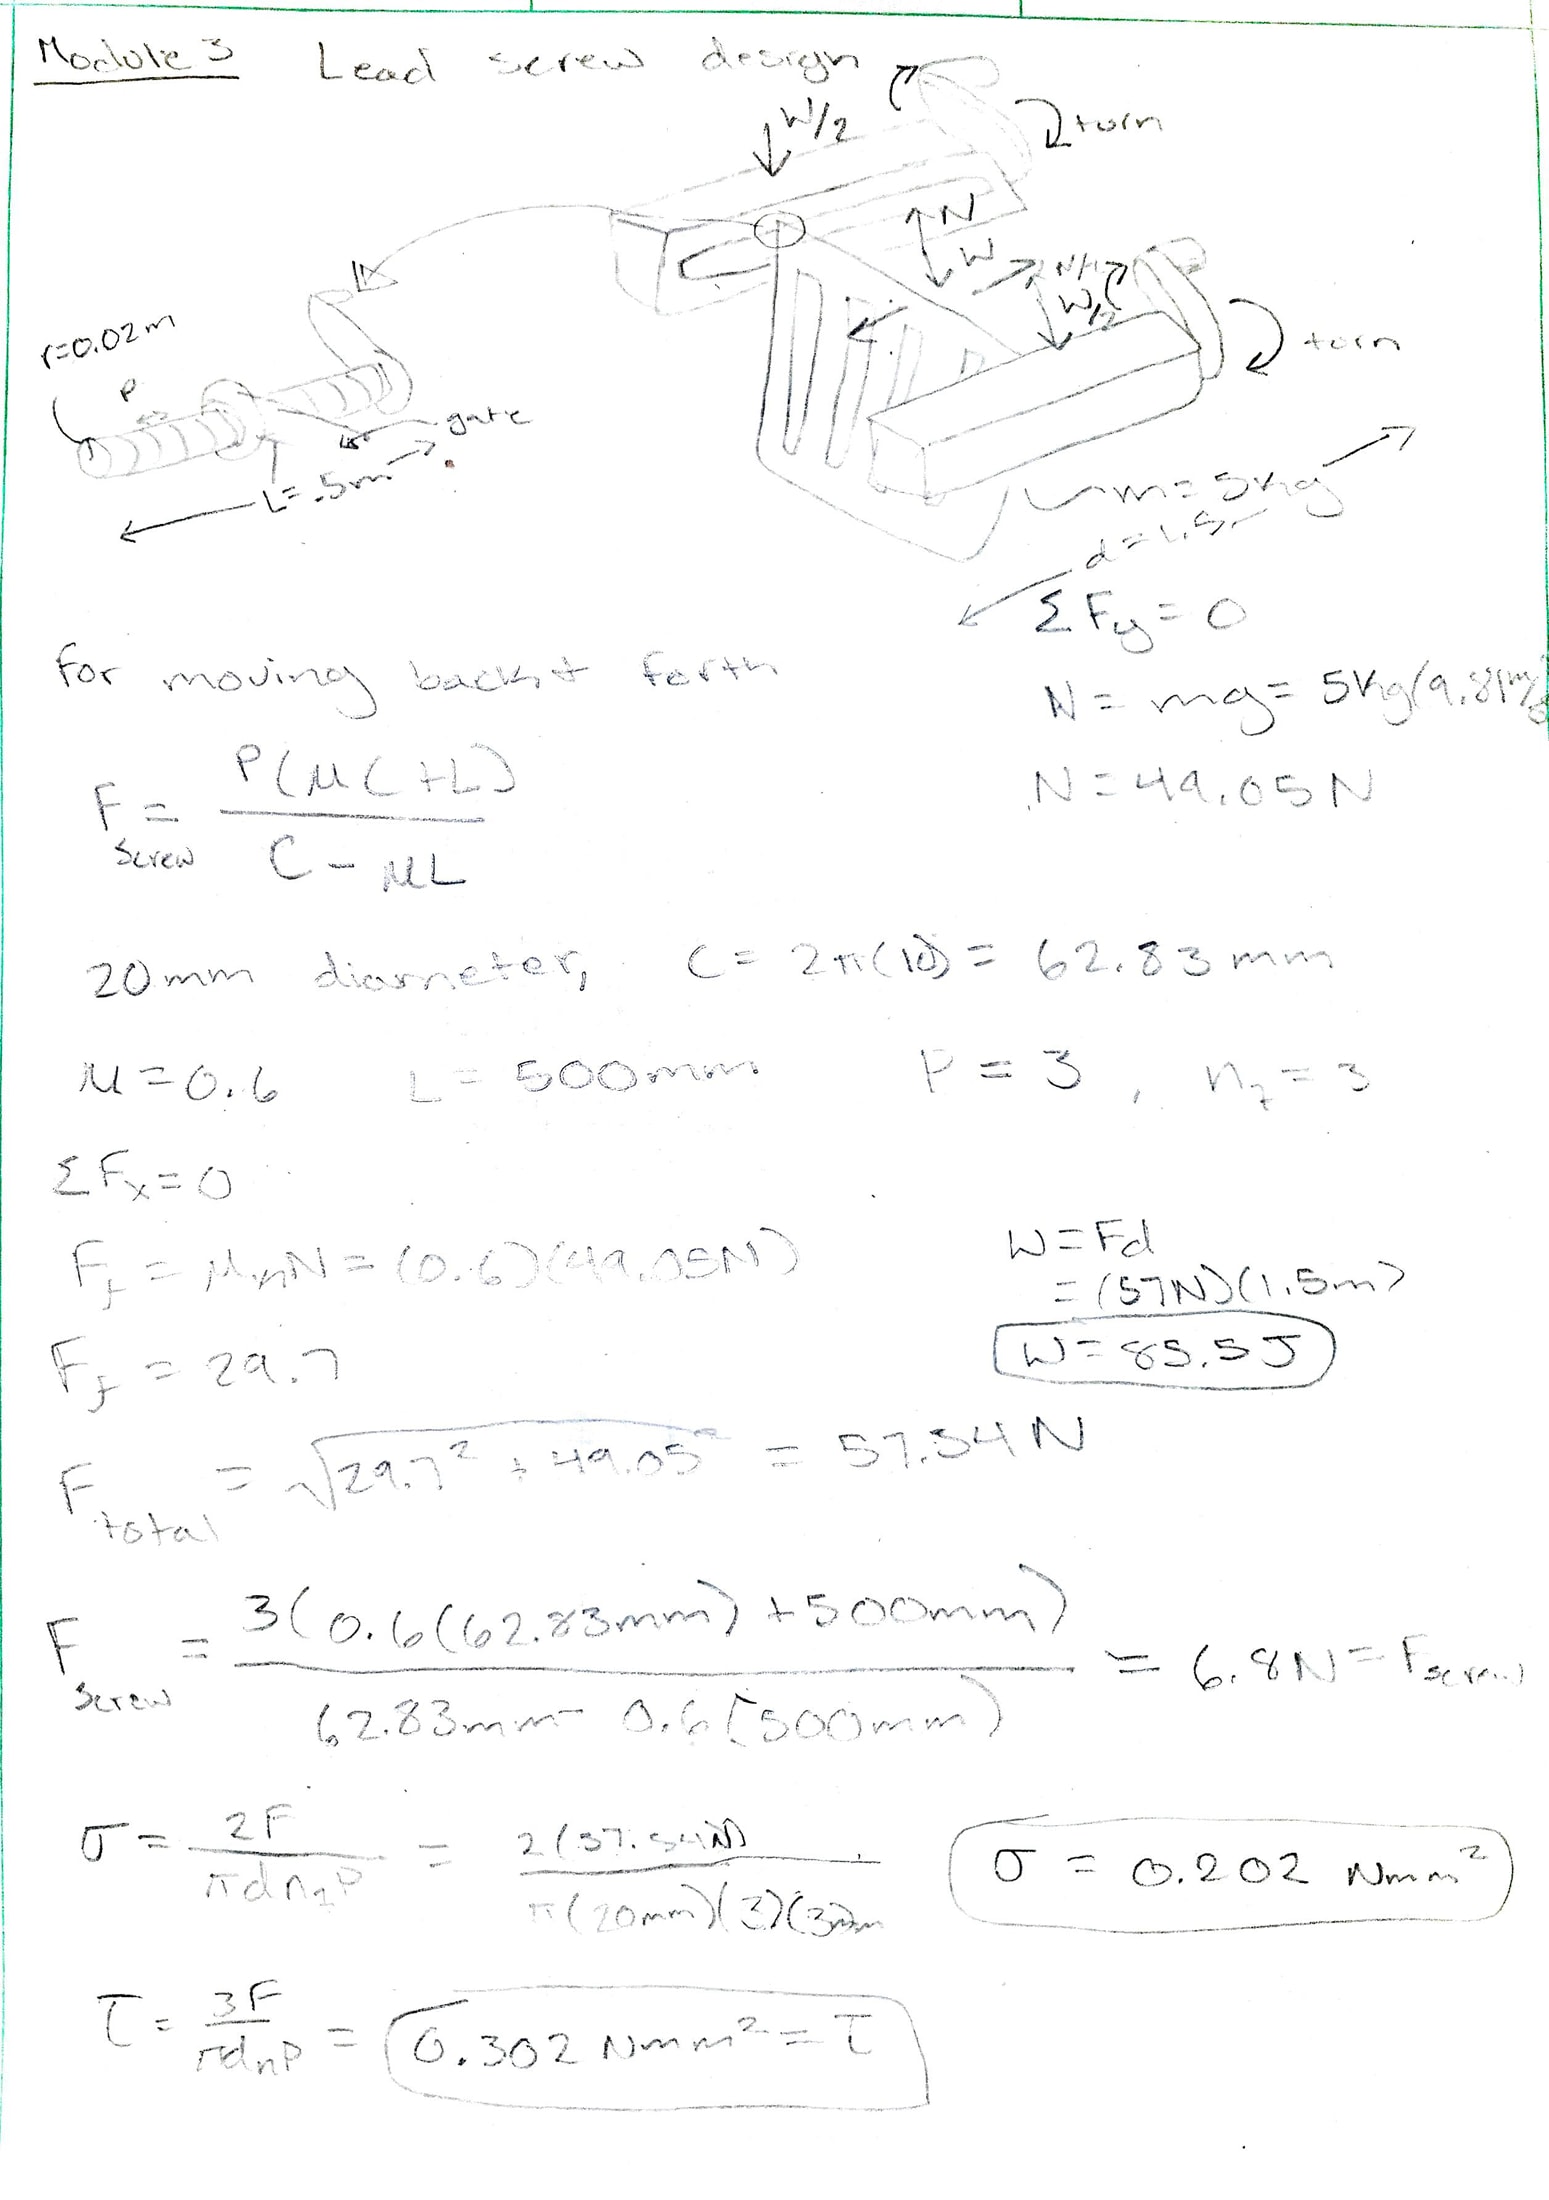 Module 3 Lead screw design
W/2
turn
N
W
W/2
turn
r=0.02m
P
gate
L=.5m
m=5kg
d=1.5m
ΣFy=0
for moving back & forth
N = mg = 5kg(9.81m/s
N=49.05N
F screw = P(μC+L) / C-μL
20mm diameter, C = 2π(10) = 62.83mm
μ=0.6 L=500mm P=3, n_t=3
ΣFx=0
F_f = μ_k N = (0.6)(49.05N)
W=Fd
=(57N)(1.5m)
F_f = 29.7
W=85.5J
F total = √29.7² + 49.05² = 57.34N
F screw = 3(0.6(62.83mm)+500mm) / 62.83mm - 0.6(500mm) = 6.8N = Fscrew
σ = 2F / πdn_tP = 2(57.34N) / π(20mm)(3)(3mm σ = 0.202 Nmm²
τ = 3F / πdnP = 0.302 Nmm² = τ